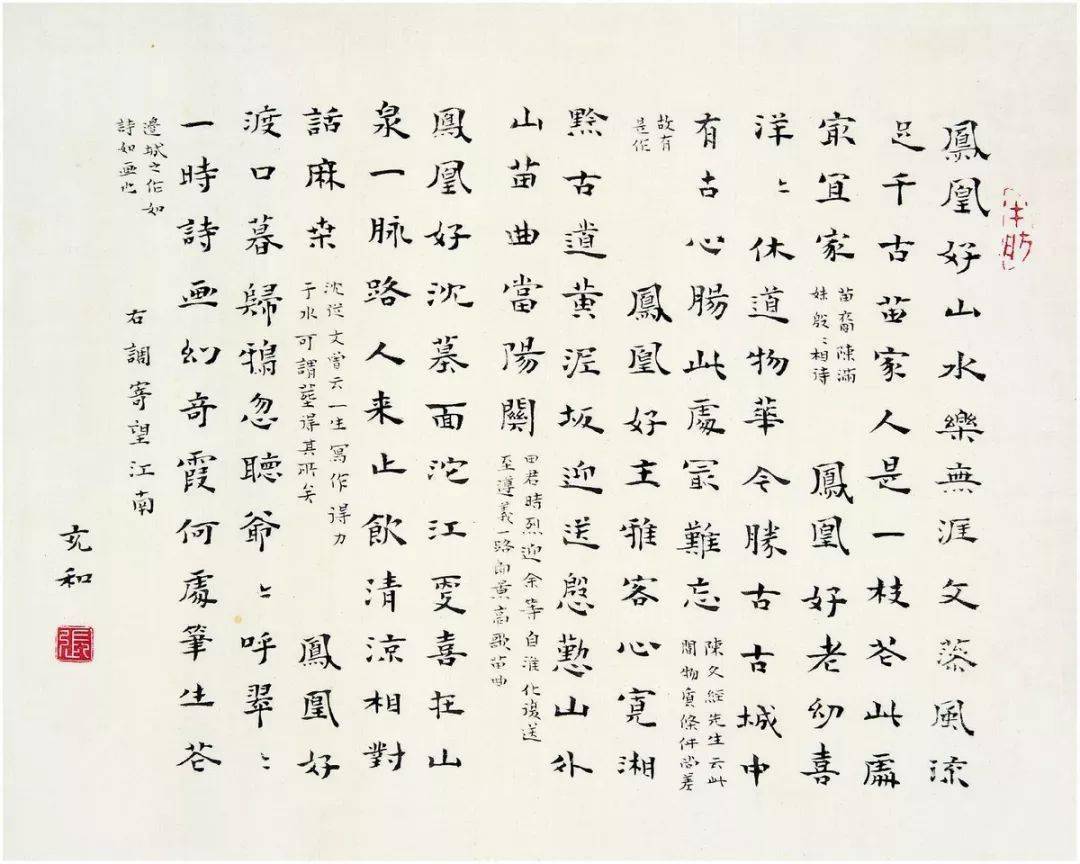 鳳凰好山水樂無涯文藻風流
足千古苗家人是一枝花此處
最宜家
苗裔陳滿
妹殷〻相待
鳳凰好老幼喜
洋〻休道物華今勝古古城中
有古心腸此處最難忘
陳久經先生云此
間物質條件尚差
故有
是作
鳳凰好主雅客心寬湘
黔古道黃泥坂迎送慇懃山外
山苗曲當陽關
田君時烈迎余等自淮化復送
至遵義一路即景高歌苗曲
鳳凰好沈墓面沱江更喜在山
泉一脉路人来止飲清涼相對
話麻桑
沈從文曾云一生寫作得力
于水可謂塟得其所矣
鳳凰好
渡口暮歸鴉忽聽爺〻呼翠〻
一時詩画幻奇霞何處筆生花
邊城之作如
詩如画也
右調寄望江南
充和
張